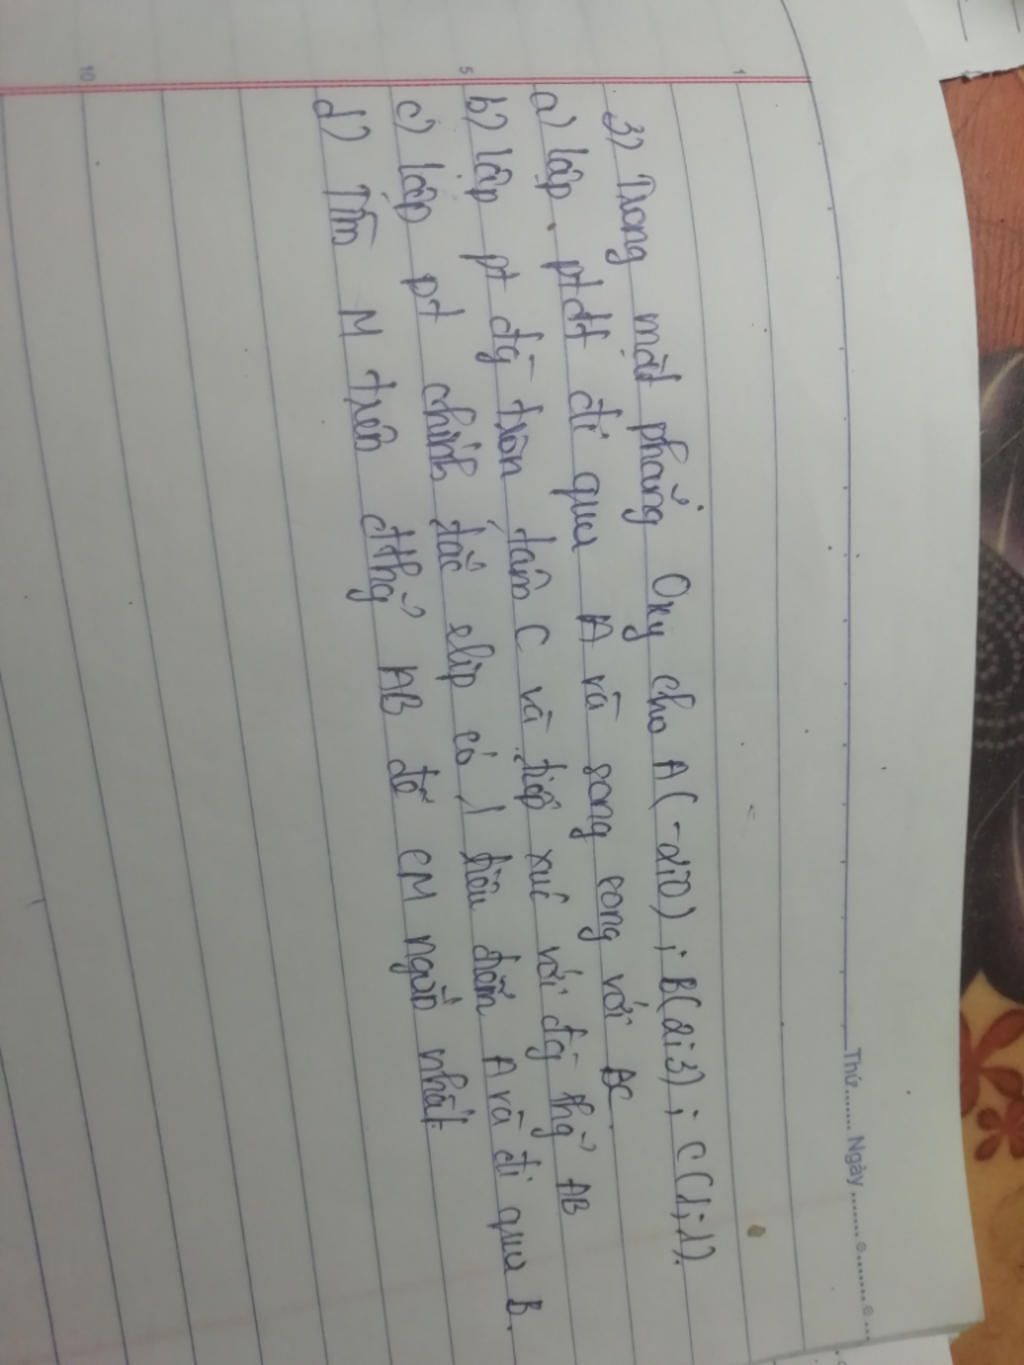 Thứ........ Ngày ........
3) Trong mặt phẳng Oxy cho A(-2;0); B(2;3); C(1;1).
a) lập ptđt đi qua A và song song với BC.
b) lập pt đg tròn tâm C và tiếp xúc với đg thg AB
c) lập pt chính tắc elip có 1 tiêu điểm A và đi qua B.
d) Tìm M trên đthg AB để CM ngắn nhất
1
5
10